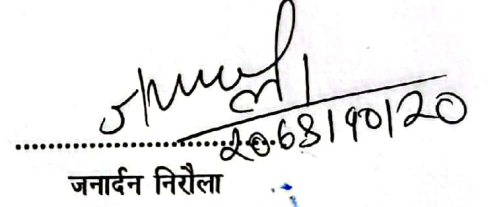 २०६८।१०।२०
जनार्दन निरौला